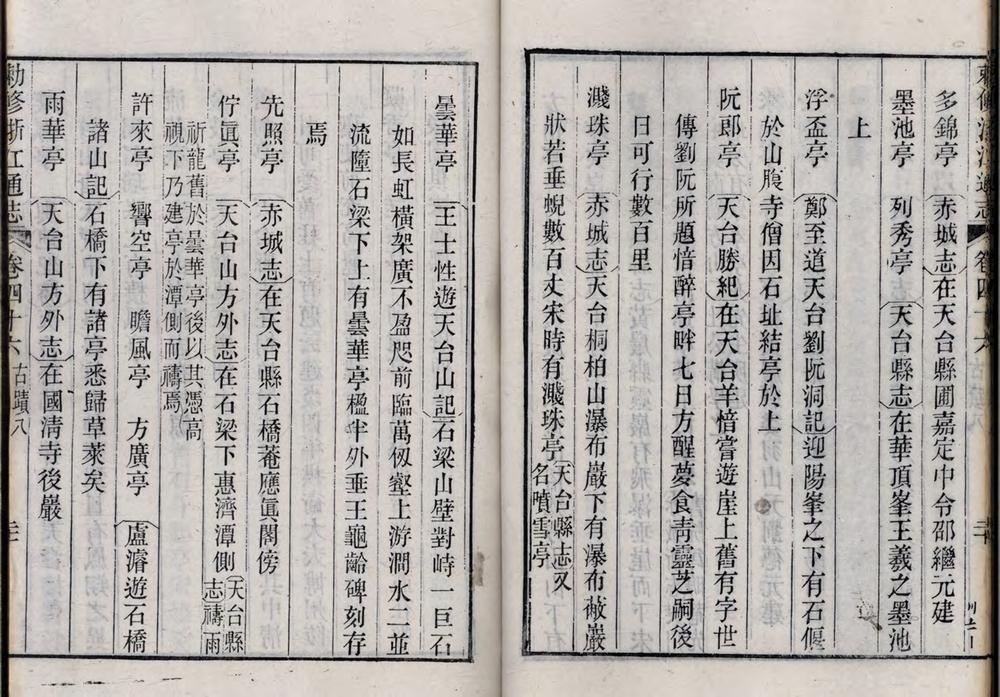 多錦亭　赤城志在天台縣圃嘉定中令邵繼元建
墨池亭　列秀亭　天台縣志在華頂峯王羲之墨池
上
浮盃亭　鄭至道天台劉阮洞記迎陽峯之下有石偃
於山腹寺僧因石址結亭於上
阮郎亭　天台勝紀在天台羊愔嘗遊崖上舊有字世
傳劉阮所題愔醉亭畔七日方醒夢食靑靈芝嗣後
日可行數百里
濺珠亭　赤城志天台桐柏山瀑布巖下有瀑布蔽巖
狀若垂蜺數百丈宋時有濺珠亭天台縣志又
名噴雪亭
曇華亭　王士性遊天台山記石梁山壁對峙一巨石
如長虹橫架廣不盈咫前臨萬仭壑上游澗水二並
流墮石梁下上有曇華亭楹半外垂王龜齡碑刻存
焉
先照亭　赤城志在天台縣石橋菴應眞閣傍
佇眞亭　天台山方外志在石梁下惠濟潭側天台縣
志禱雨
祈龍舊於曇華亭後以其憑高
視下乃建亭於潭側而禱焉
許來亭　響空亭　瞻風亭　方廣亭　盧濬遊石橋
諸山記石橋下有諸亭悉歸草萊矣
雨華亭　天台山方外志在國清寺後巖
勅修浙江通志　卷四十六　古蹟八